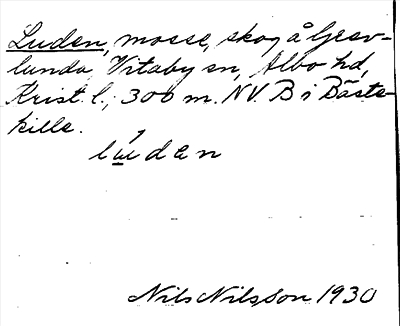 Luden, mosse, skog å Gesv-
lunda, Vitaby sn, Albo hd,
Krist. l.; 300 m. NV. B i Bäste-
kille.
lúden
Nils Nilsson 1930